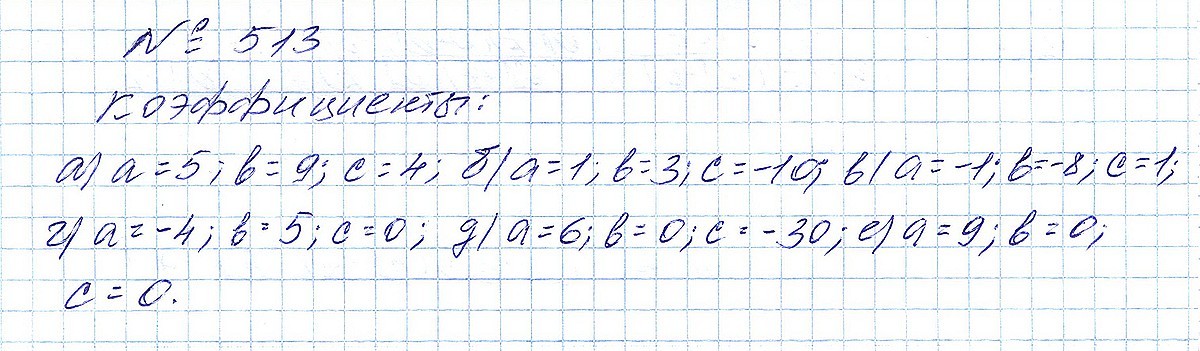 № 513
Коэффициенты:
а) a = 5; в = 9; c = 4; б) a = 1; в = 3; c = -10; в) a = -1; в = -8; c = 1;
г) a = -4; в = 5; c = 0; д) a = 6; в = 0; c = -30; е) a = 9; в = 0;
c = 0.